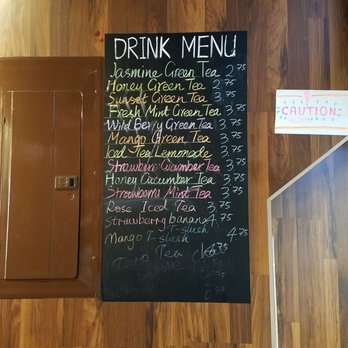 DRINK MENU
Jasmine Green Tea 2.75
Honey Green Tea 2.75
Sunset Green Tea 3.75
Fresh Mint Green Tea 3.75
Wild Berry Green Tea 3.75
Mango Green Tea 3.75
Iced Tea Lemonade 3.75
Strawberry Cucumber Tea 3.75
Honey Cucumber Tea 3.75
Strawberry Mint Tea 3.75
Rose Iced Tea 3.75
Strawberry banana 4.75
T-slush
Mango T-slush 4.75
Tea
CAUTION